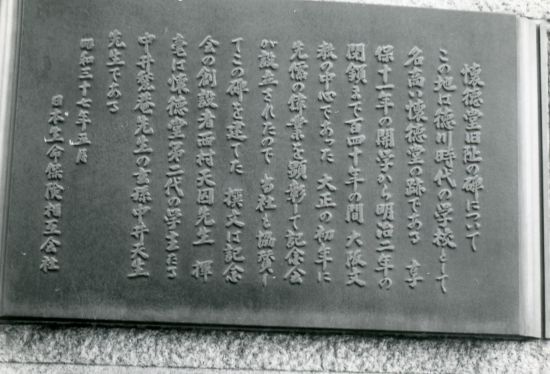 懐徳堂旧阯の碑について
この地は徳川時代の学校として
名高い懐徳堂の跡である　享
保十一年の開学から明治二年の
閉鎖まで百四十年の間　大阪文
教の中心であった　大正の初年に
先儒の偉業を顕彰して記念会
が設立されたので　当社も協賛し
てこの碑を建てた　撰文は記念
会の創設者西村天囚先生　揮
毫は懐徳堂第二代の学主たる
中井甃庵先生の玄孫中井天生
先生である
昭和三十七年五月
日本生命保険相互会社